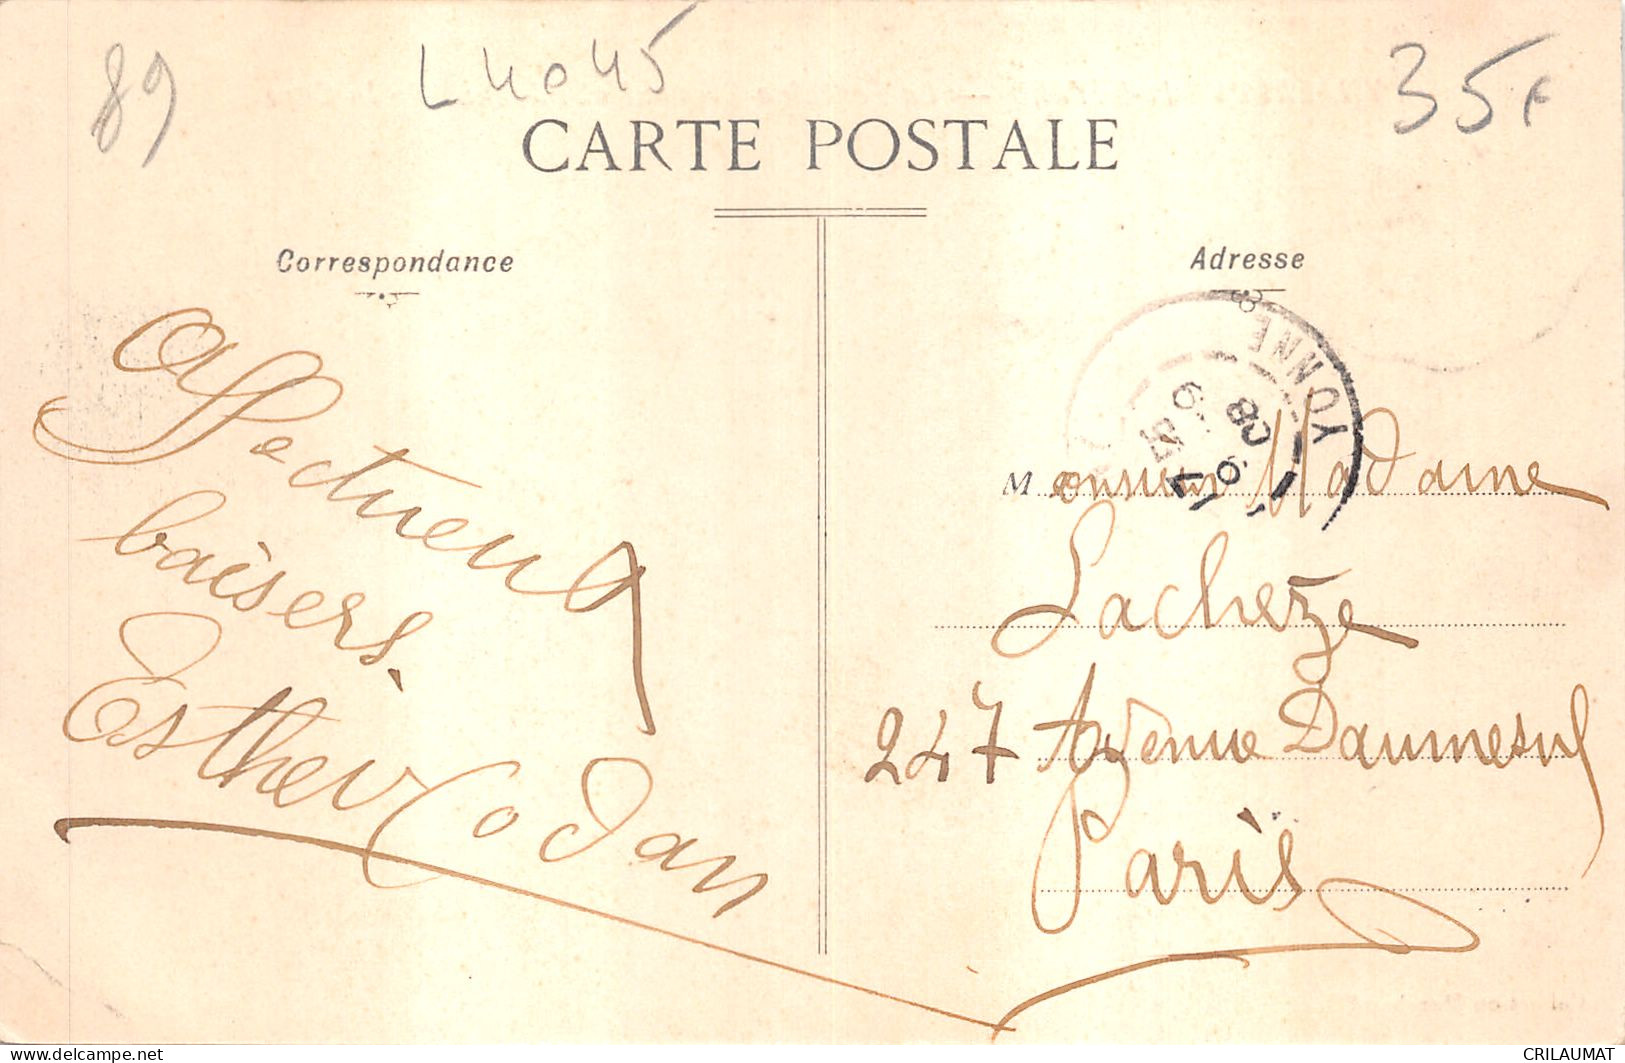 89
L4045
35F
CARTE POSTALE
Correspondance
Adresse
YONNE
Affectueux
baisers.
Esther Codan
Monsieur Madame
Lacheze
247 Avenue Daumesnil
Paris
CRILAUMAT